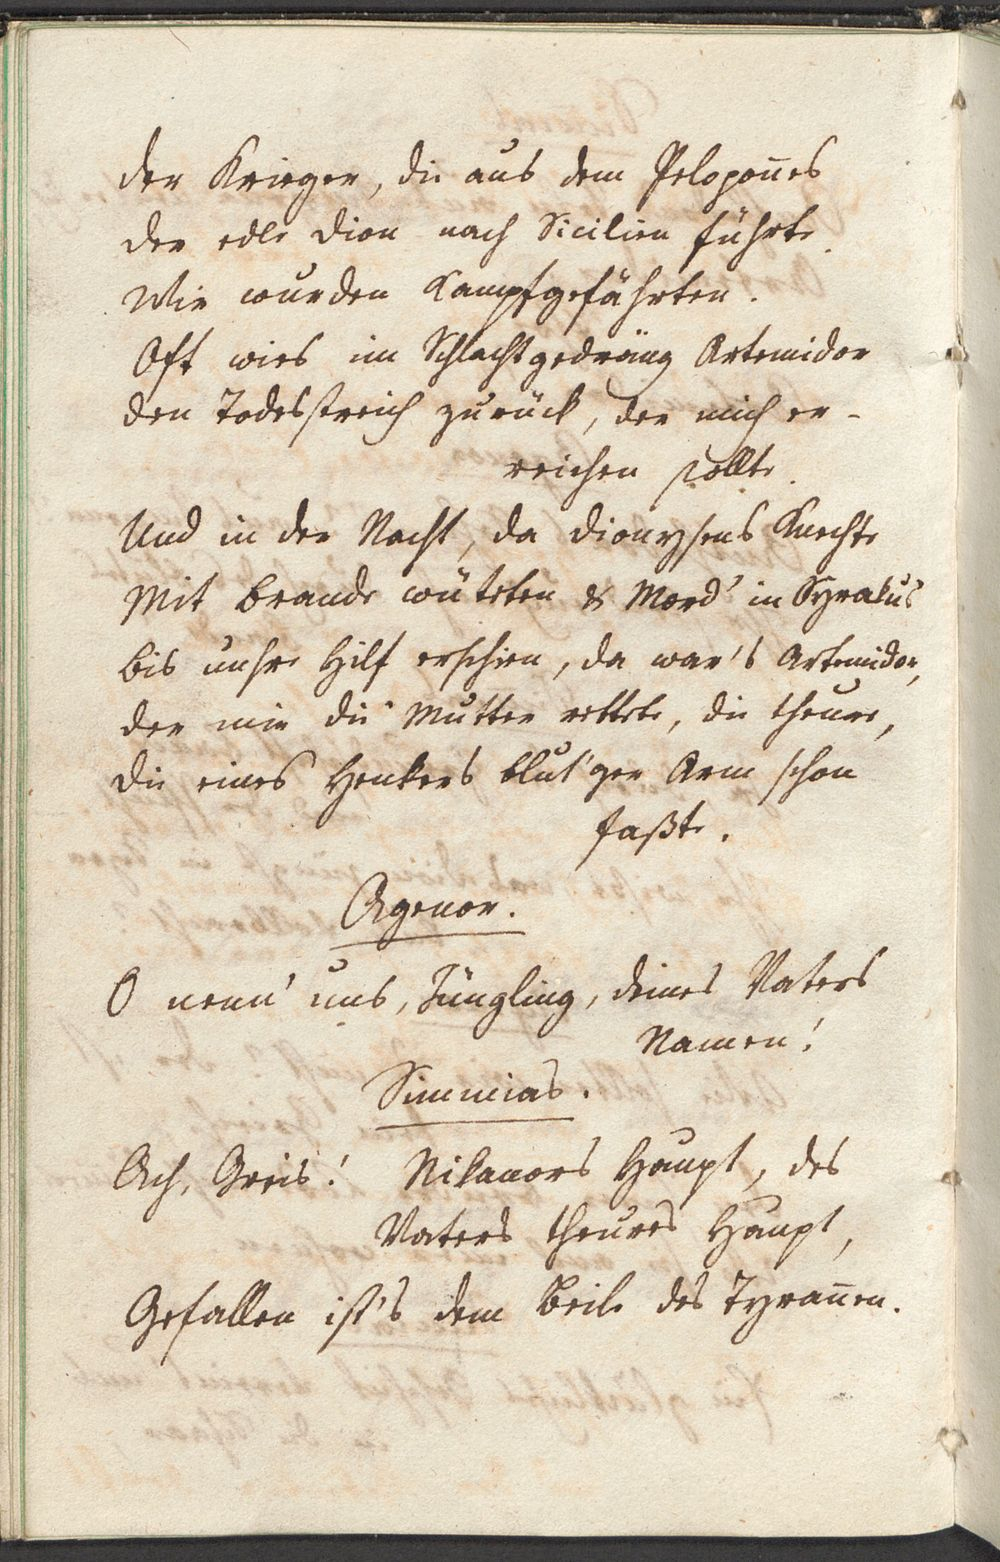 der Krieger, die aus dem Peloponn̄es
der edle Dion nach Sicilien führte.
Wir wurden Kampfgefährten.
Oft wies im Schlachtgedräng Artemidor
den Todesstreich zurück, der mich er-
reichen sollte.
Und in der Nacht, da Dionysens Knechte
Mit Brande wüteten & Mord' in Syrakus
bis unsre Hilf erschien, da war's Artemidor,
der mir die Mutter rettete, die theure,
die eines Henkers blut'ger Arm schon
faßte.
Agenor.
O nenn' uns, Jüngling, deines Vaters
Namen!
Simmias.
Ach, Greis! Nikanors Haupt, des
Vaters theures Haupt,
Gefallen ist's dem Beile des Tyran̄en.